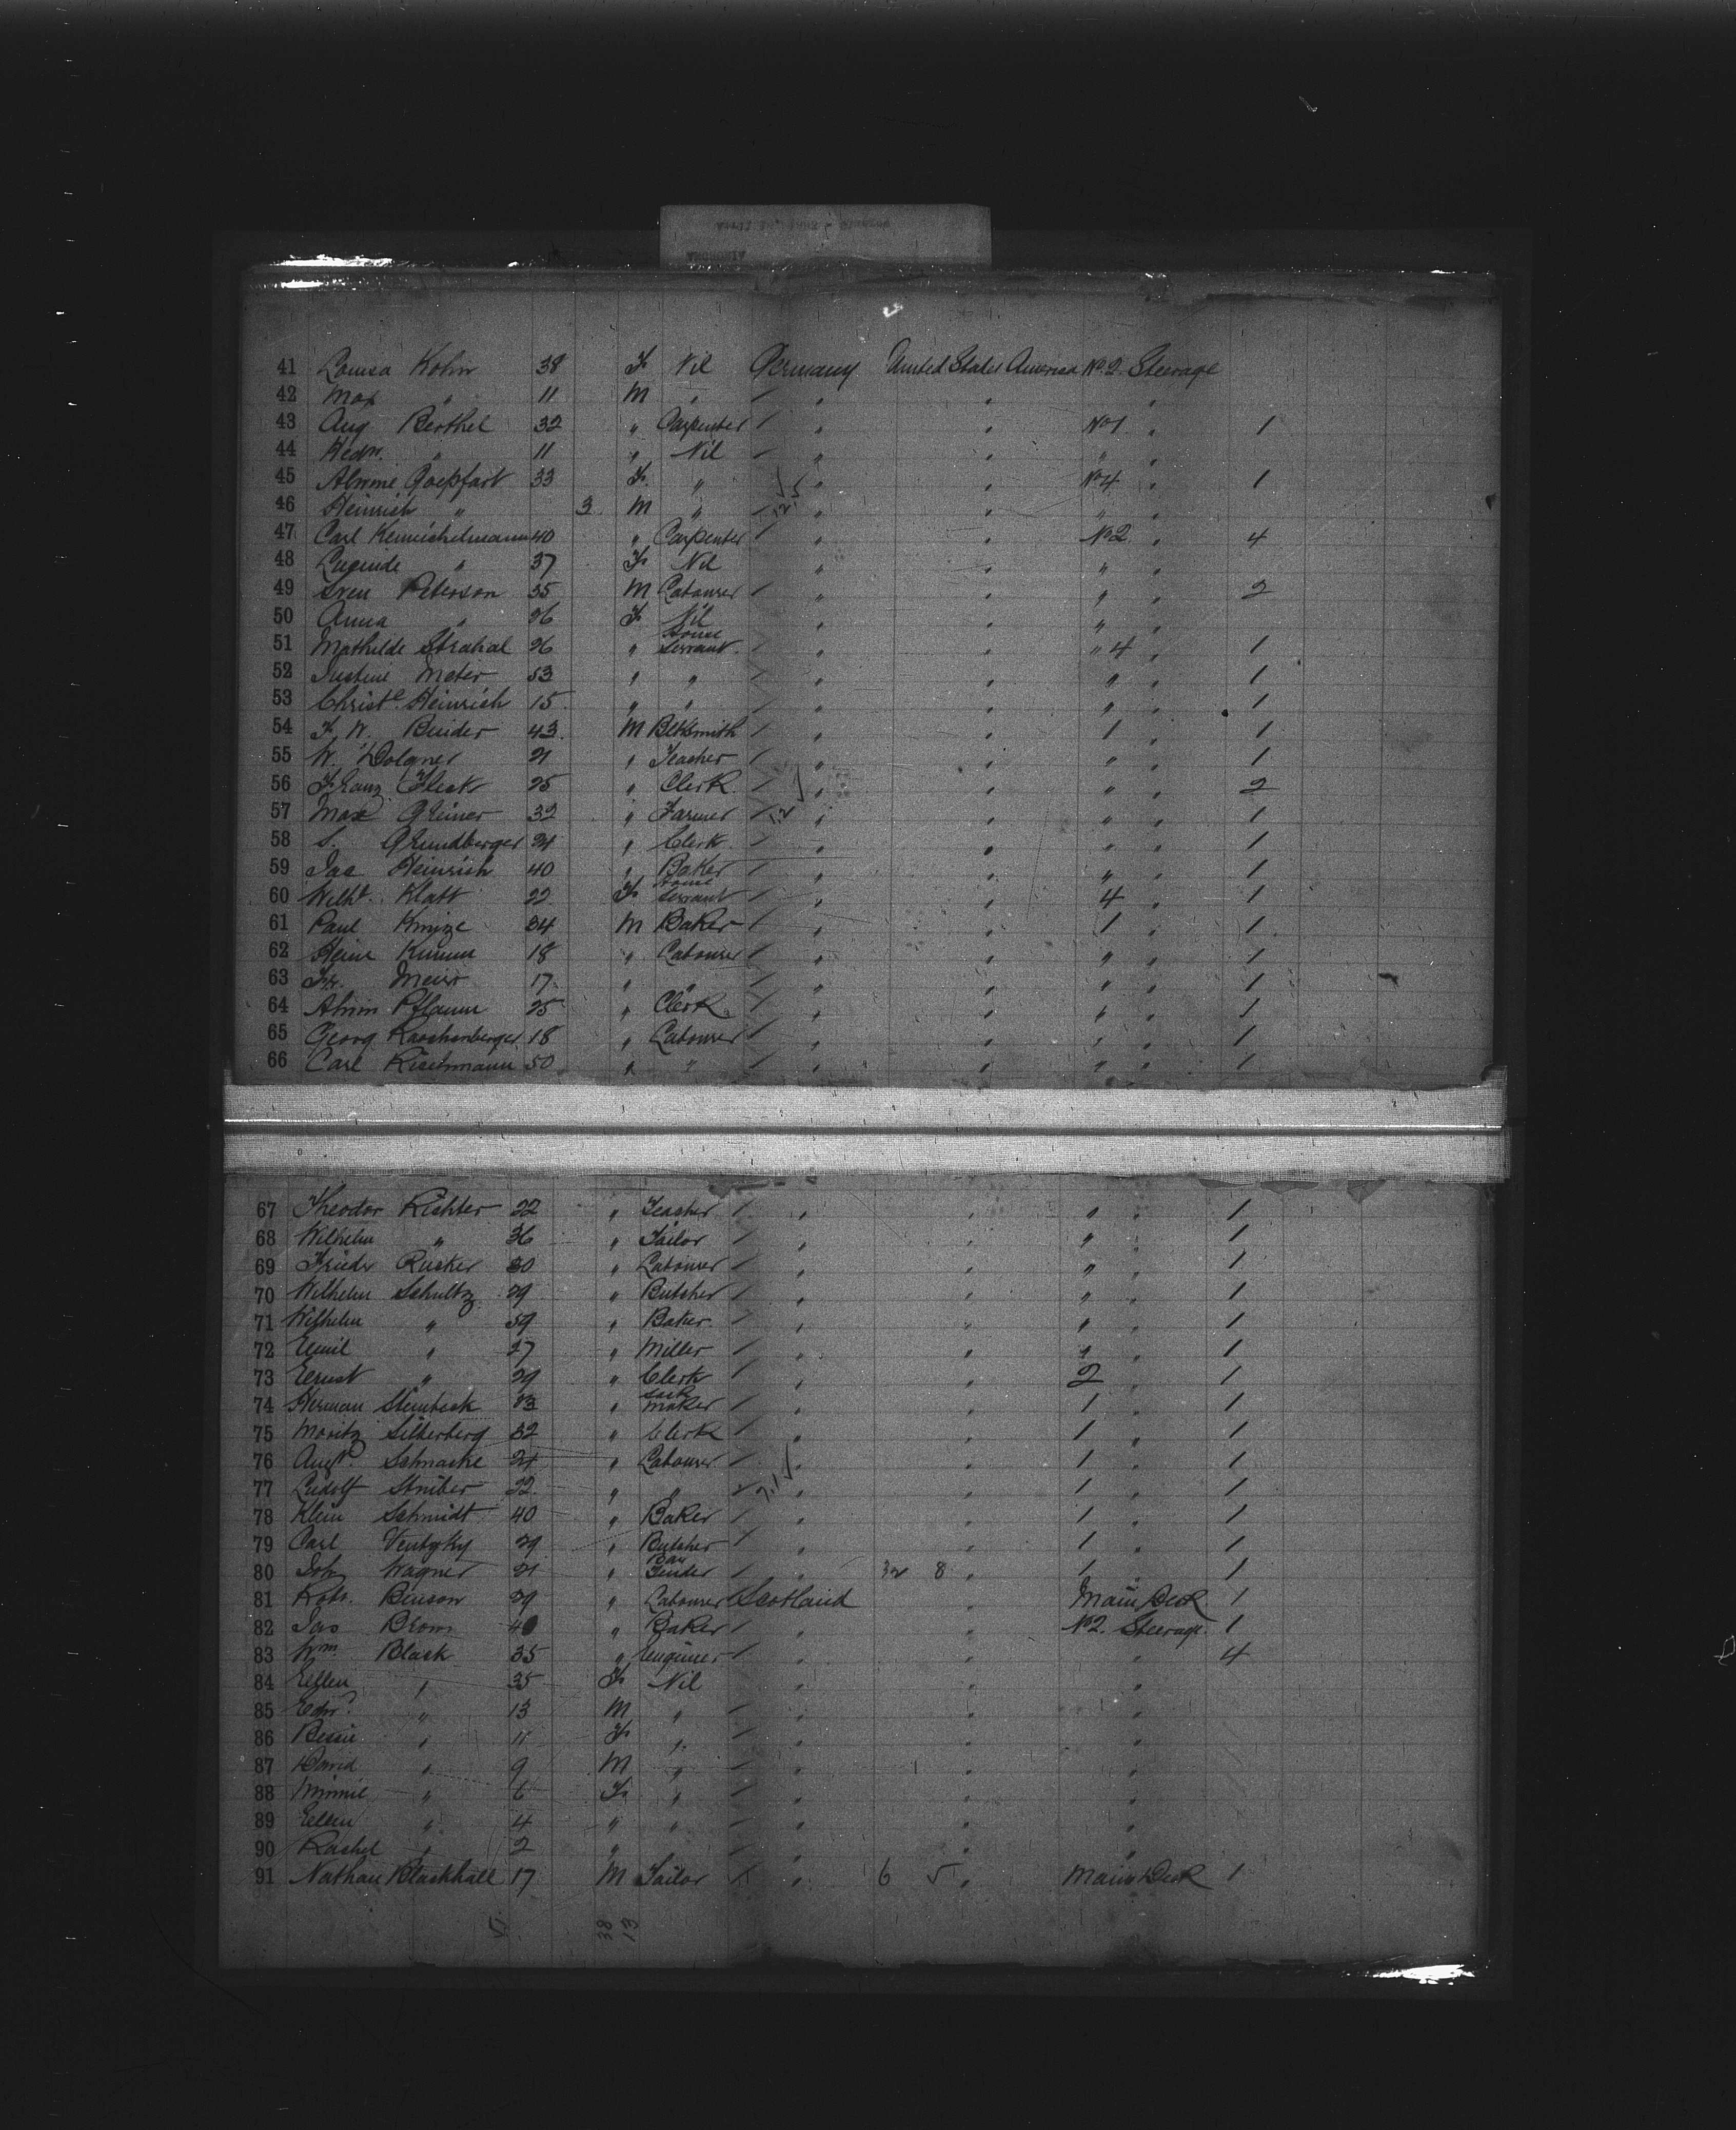 41 Louisa Kohn 38 F Nil Germany United States America No. 2 Steerage
42 Max " 11 M " " " "
43 Aug Berthel 32 " Carpenter " " No 1 " 1
44 " 11 " Nil " " " "
45 33 F " " " No 4 " 1
46 Heinrich " 3 M " " " " "
47 Carl 40 " Carpenter " " No 2 " 4
48 " 37 F Nil " " " "
49 Sven Peterson 35 M Labourer " " " " 2
50 Anna " 26 F Nil " " "
51 Mathilde Strakal 26 " House Servant " " " 4 " 1
52 Justine Meter 53 " " " " " " 1
53 Christe Heinrich 15 " " " " " " 1
54 F. W. Binder 43 M Blksmith " " 1 " 1
55 W. Dolgner 21 " Teacher " " " " 1
56 Franz Fleck 25 " Clerk " " " " 2
57 Max Greiner 32 " Farmer " " " " 1
58 S. Grundberger 24 " Clerk " " " " 1
59 Jac Heinrich 40 " Baker " " " " 1
60 Wilht Klatt 22 F House Servant " " 4 " 1
61 Paul 34 M Baker " " 1 " 1
62 Heinr Kumm 18 " Labourer " " " " 1
63 Fr. Meier 17 " " " " " " 1
64 Pflaum 25 " Clerk " " " " 1
65 Georg Raschenberger 18 " Labourer " " " " 1
66 Carl 50 " " " " " " 1
67 Theodor Richter 22 " Teacher " " " " 1
68 Wilhelm " 36 " Tailor " " " " 1
69 Frieder Rucker 30 " Labourer " " " " 1
70 Wilhelm Schultz 29 " Butcher " " " " 1
71 Wilhelm " 59 " Baker " " " " 1
72 Emil " 27 " Miller " " " " 1
73 Ernst " 29 " Clerk " " 2 " 1
74 Herman Steinbeck 33 " Sack Maker " " 1 " 1
75 Moritz Silberberg 32 " Clerk " " 1 " 1
76 Augt Schnacke 24 " Labourer " " 1 " 1
77 Ludolf Struber 22 " " " " 1 " 1
78 Klein Schmidt 40 " Baker " " 1 " 1
79 Carl 29 " Butcher " " 1 " 1
80 Joh Wagner 21 " Bar Tender " 32 8 " 1 " 1
81 Robt. Benson 29 " Labourer Scotland " Main Deck 1
82 Jas Brown " Baker " " No 2. Steerage 1
83 Wm Black 35 " Engineer " " " 4
84 Ellen " 35 F Nil " " "
85 Edwd " 13 M " " " "
86 Bessie " 11 F " " " "
87 David " 9 M " " " "
88 Minnie " 6 F " " " "
89 Ellen " 4 " " " " "
90 Rachel " 2 " " " "
91 Nathan Blackhall 17 M Tailor " 6 5 " Main Deck 1
38
13